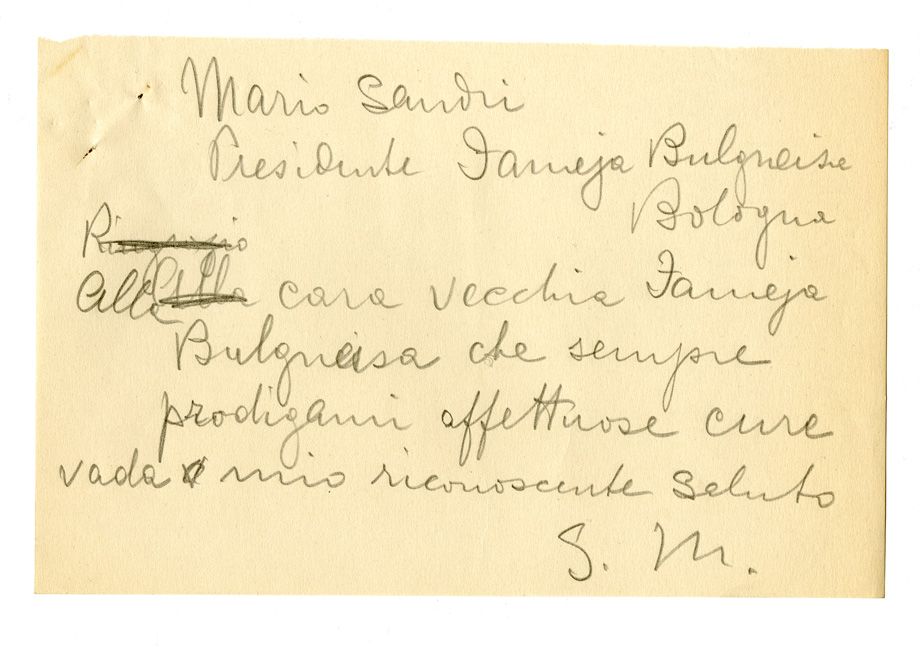 Mario Sandri
Presidente Fameja Bulgneise
Bologna
Alla cara vecchia Fameja
Bulgneisa che sempre
prodigami affettuose cure
vada mio riconoscente saluto
S. M.